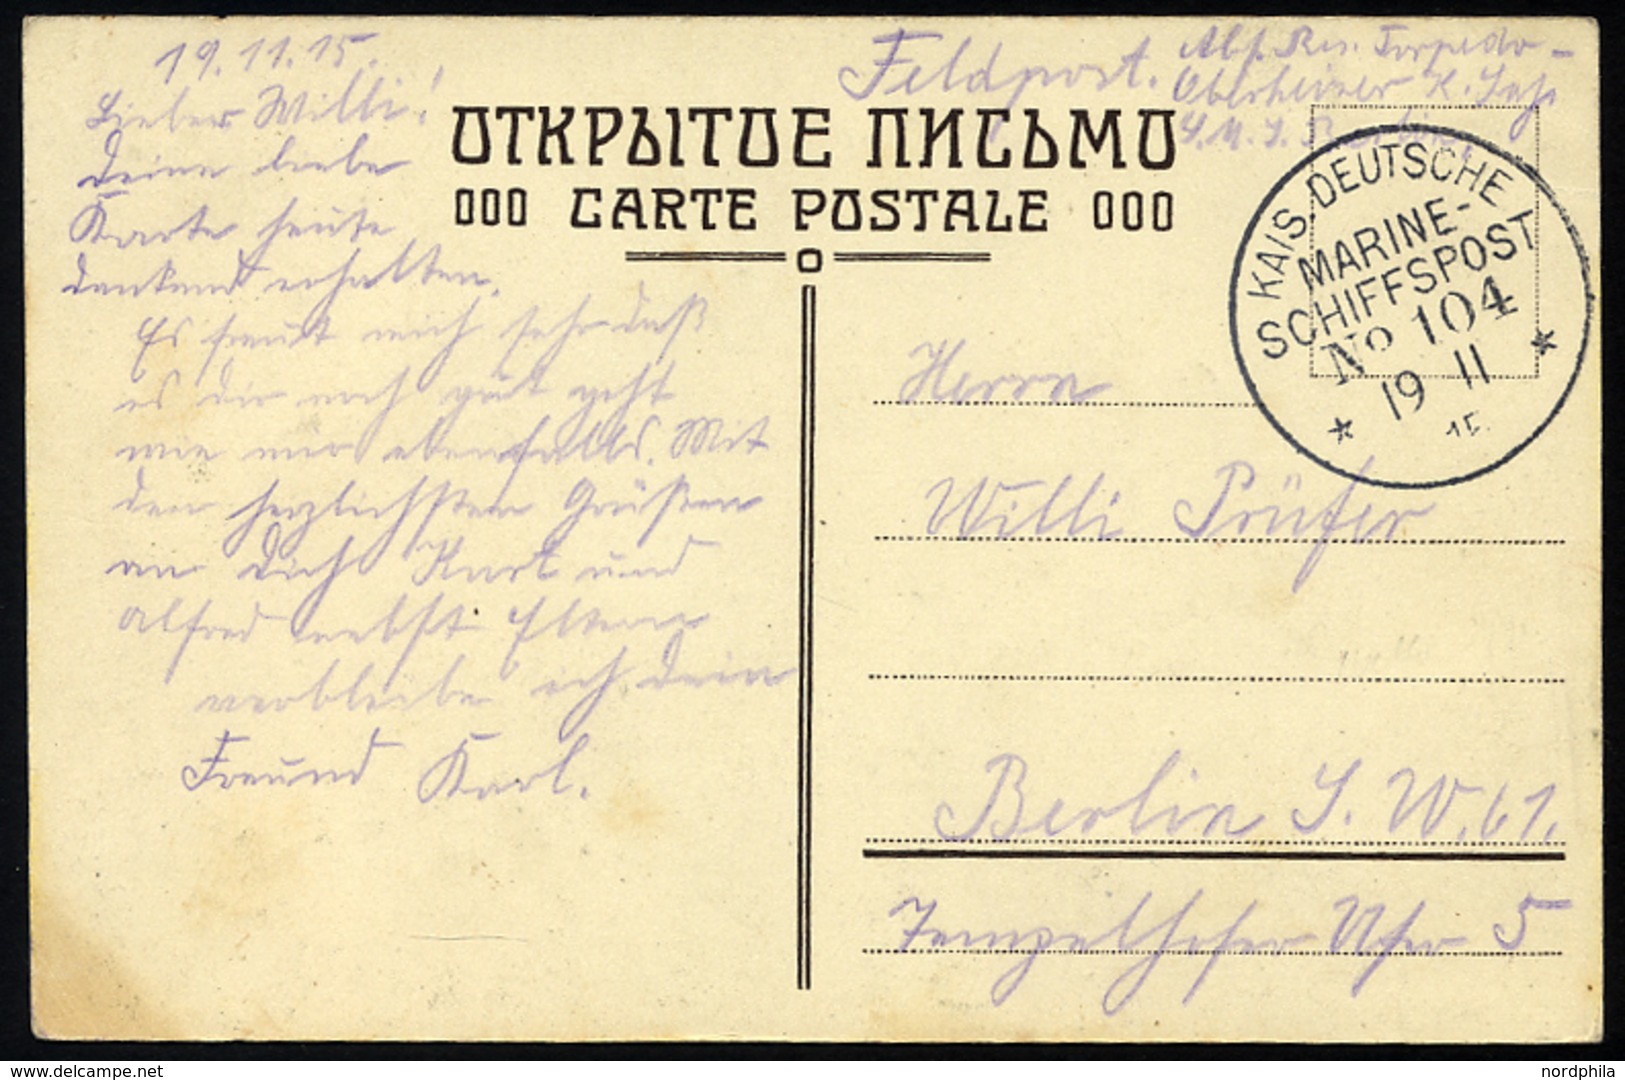 19.11.15.
Lieber Willi!
Deine liebe
Karte heute
dankend erhalten.
Es freut mich sehr daß
es dir noch gut geht
wie mir ebenfalls. Mit
den herzlichsten Grüßen
an Dich Kurt und
Alfred nebst Eltern
verbleibe ich dein
Freund Karl.
ОТКРЫТОЕ ПИСЬМО
CARTE POSTALE
Feldpost. Abs. Res. Torpedo-
Oberheizer K.
S.M.S.
KAIS. DEUTSCHE
MARINE-
SCHIFFSPOST
No 104
19 11
15.
Herrn
Willi Prüfer
Berlin S.W.61.
Tempelhofer Ufer 5
delcampe.net
nordphila